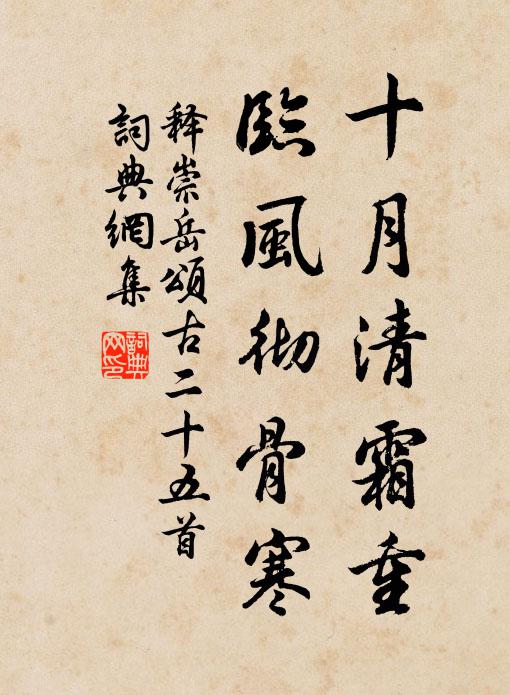 十月清霜重
臨風彻骨寒
释崇岳頌古二十五首
詞典網集
詞典网印